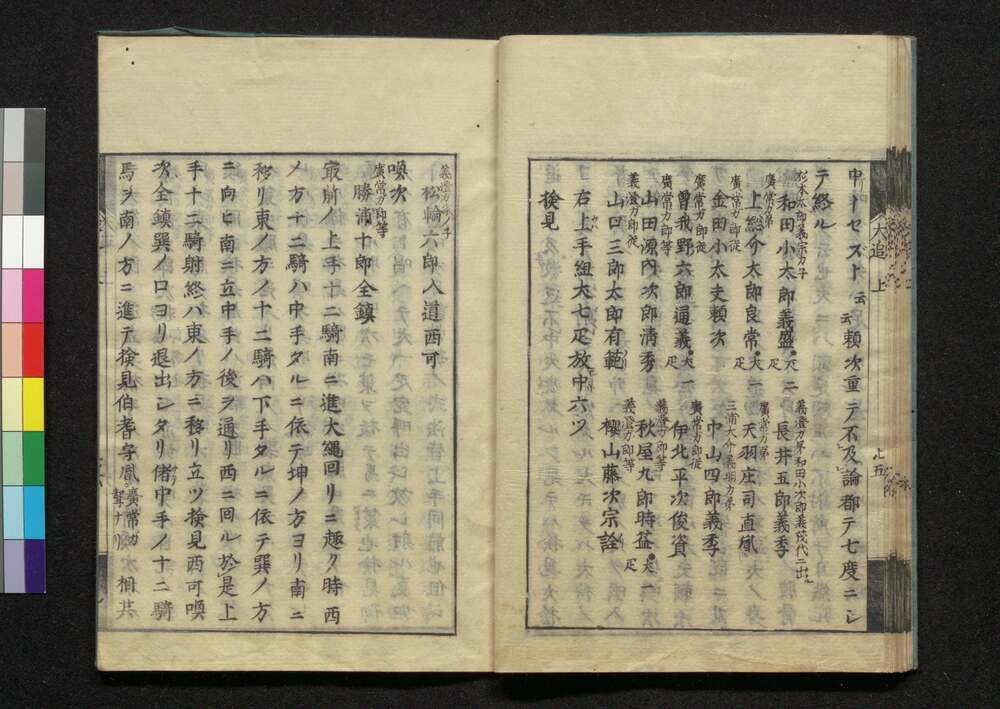 中ーセズト云云頼次重テ不及論都テ七度ニシ
テ終ル
杉本太郎義宗カ子
和田小太郎義盛犬二疋
義澄カ弟和田小次郎義茂代ニ出
長井五郎義季
廣常カ弟
上総介太郎良常犬一疋
廣常カ弟
天羽庄司直胤
廣常カ郎従
金田小太夫頼次
三浦大介義明カ弟
中山四郎義季
廣常カ郎等
曽我野六郎通義犬一疋
廣常カ郎従
伊北平次俊資
義澄カ郎従
山田源内次郎清秀
義澄カ郎等
秋屋九郎時益犬一疋
義澄カ郎従
山口三郎太郎有範
義澄カ郎等
櫻山藤次宗詮
右上手組犬七疋放中六ツ
検見
犬追 上
廿五
義澄カ
松輪六郎入道西可
喚次
廣常カ郎等
勝浦十郎全鎮
最前ノ上手十二騎南ニ進大縄回リニ趣ク時西
ノ方十二騎ハ中手タルニ依テ坤ノ方ヨリ南ニ
移リ東ノ方ノ十二騎ハ下手タルニ依テ巽ノ方
ニ向ヒ南ニ立中手ノ後ヲ通リ西ニ回ル於是上
手十二騎射終ハ東ノ方ニ移リ立ツ検見西可喚
次全鎮巽ノ口ヨリ退出シタリ偖中手ノ十二騎
馬ヲ南ノ方ニ進テ検見伯耆守胤廣常カ聟ナリ相共